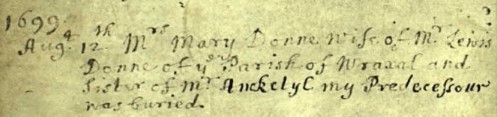 1699
Augt 12th Mrs Mary Donne Wife of Mr Lewis
Donne of ys Parish of Wraxal and
Sister of Mr Anketyl my Predecessour
was buried